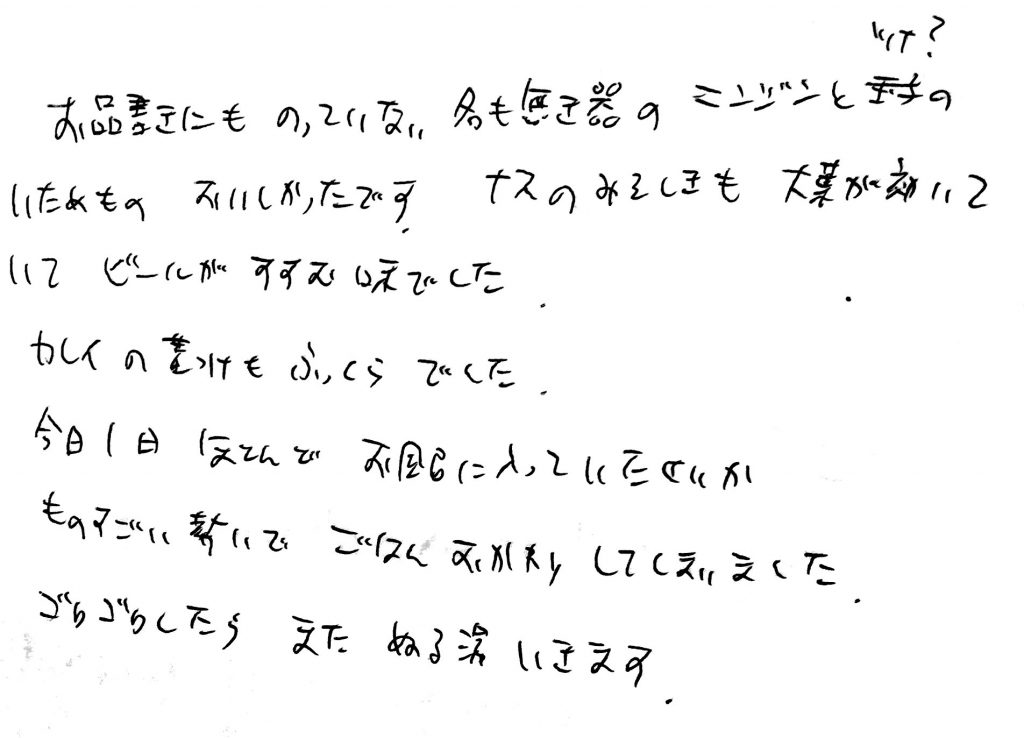 ツナ?
お品書きにものっていない名も無き器のニンジンと玉子の
いためもの おいしかったです. ナスのみそしきも 大葉が効いて
いて ビールがすすむ味でした.
カレイの煮つけも ふっくらでした.
今日1日 ほとんど お風呂に入っていたせいか
ものすごい勢いで ごはんおかわりしてしまいました.
ゴロゴロしたら またぬる湯いきます.